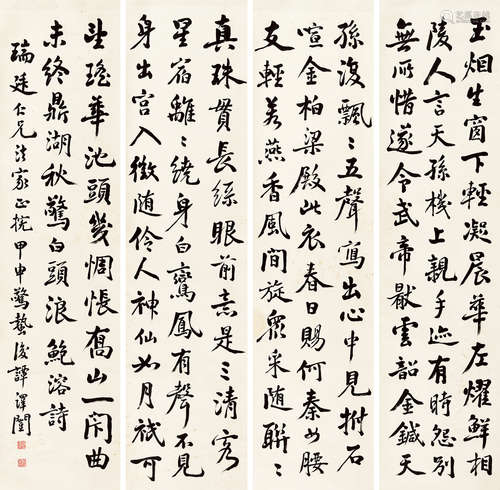 玉烟生窗下輕凝晨華左耀鮮相
陵人言天孫機上親手迹有時怨別
無所惜遂令武帝猒雲韶金鍼天
飄〻五聲寫出心中見拊石
喧金柏梁殿此衣春日賜何秦女腰
支輕若燕香風間旋衆采随聯〻
真珠貫長絲眼前意是三清客
星宿離〻繞身白鸞鳳有聲不見
身出宫入徵随伶人神仙如月祇可
望瑤華池頭幾惆悵喬山一閉曲
未終鼎湖秋驚白頭浪 鮑溶詩
瑞廷仁兄法家正捥 甲申驚蟄後譚澤闓